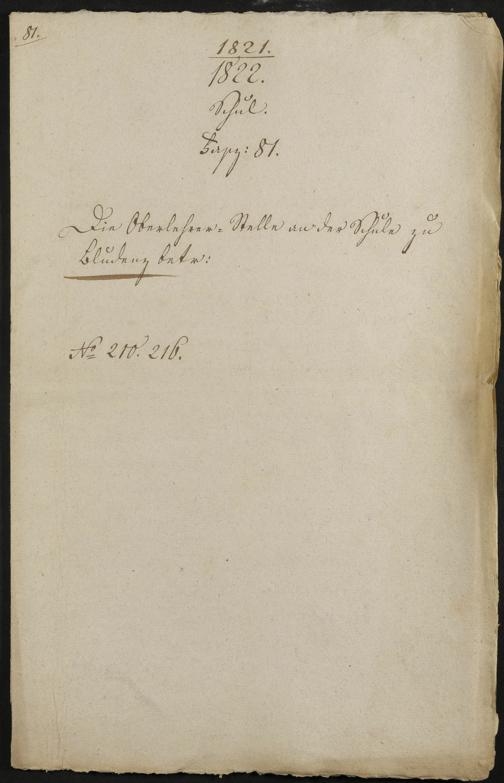 81.
1821.
1822.
Schul.
Fasz: 81.
Die Oberlehrer-Stelle an der Schule zu
Bludenz betr:
No 210. 216.